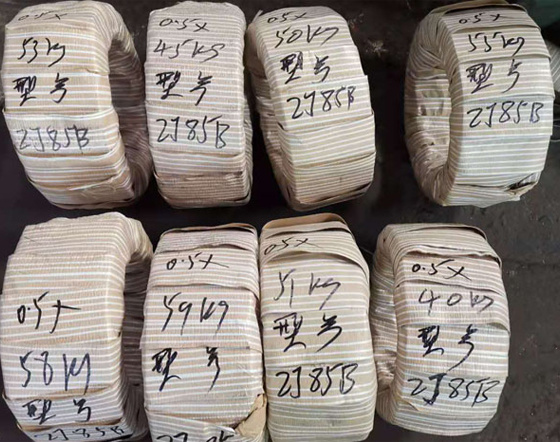 0.5X
53kg
型号
2J85B
0.5X
45kg
型号
2J85B
0.5X
50kg
型号
2J85B
0.5X
55kg
型号
2J85B
0.5X
58kg
型号
2J85B
0.5X
59kg
型号
0.5X
51kg
型号
2J85B
0.5X
40kg
型号
2J85B